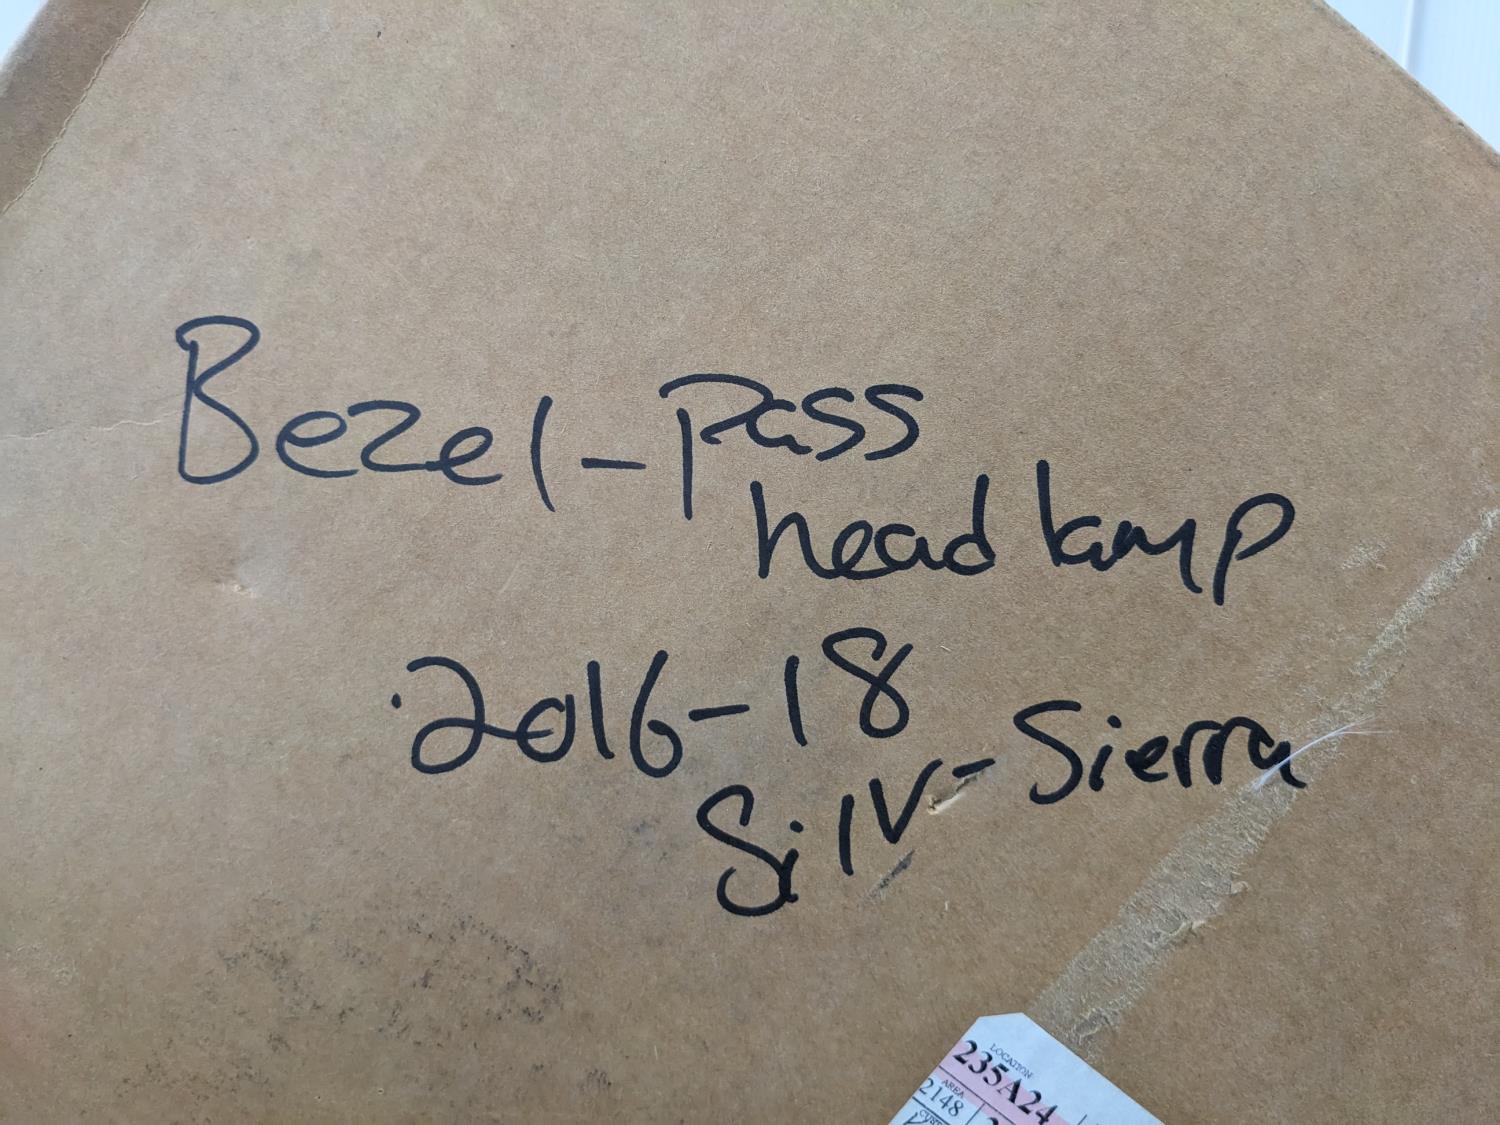 Bezel - pass
head lamp
2016-18
Silv - Sierra
LOCATION
235A24
AREA
2148